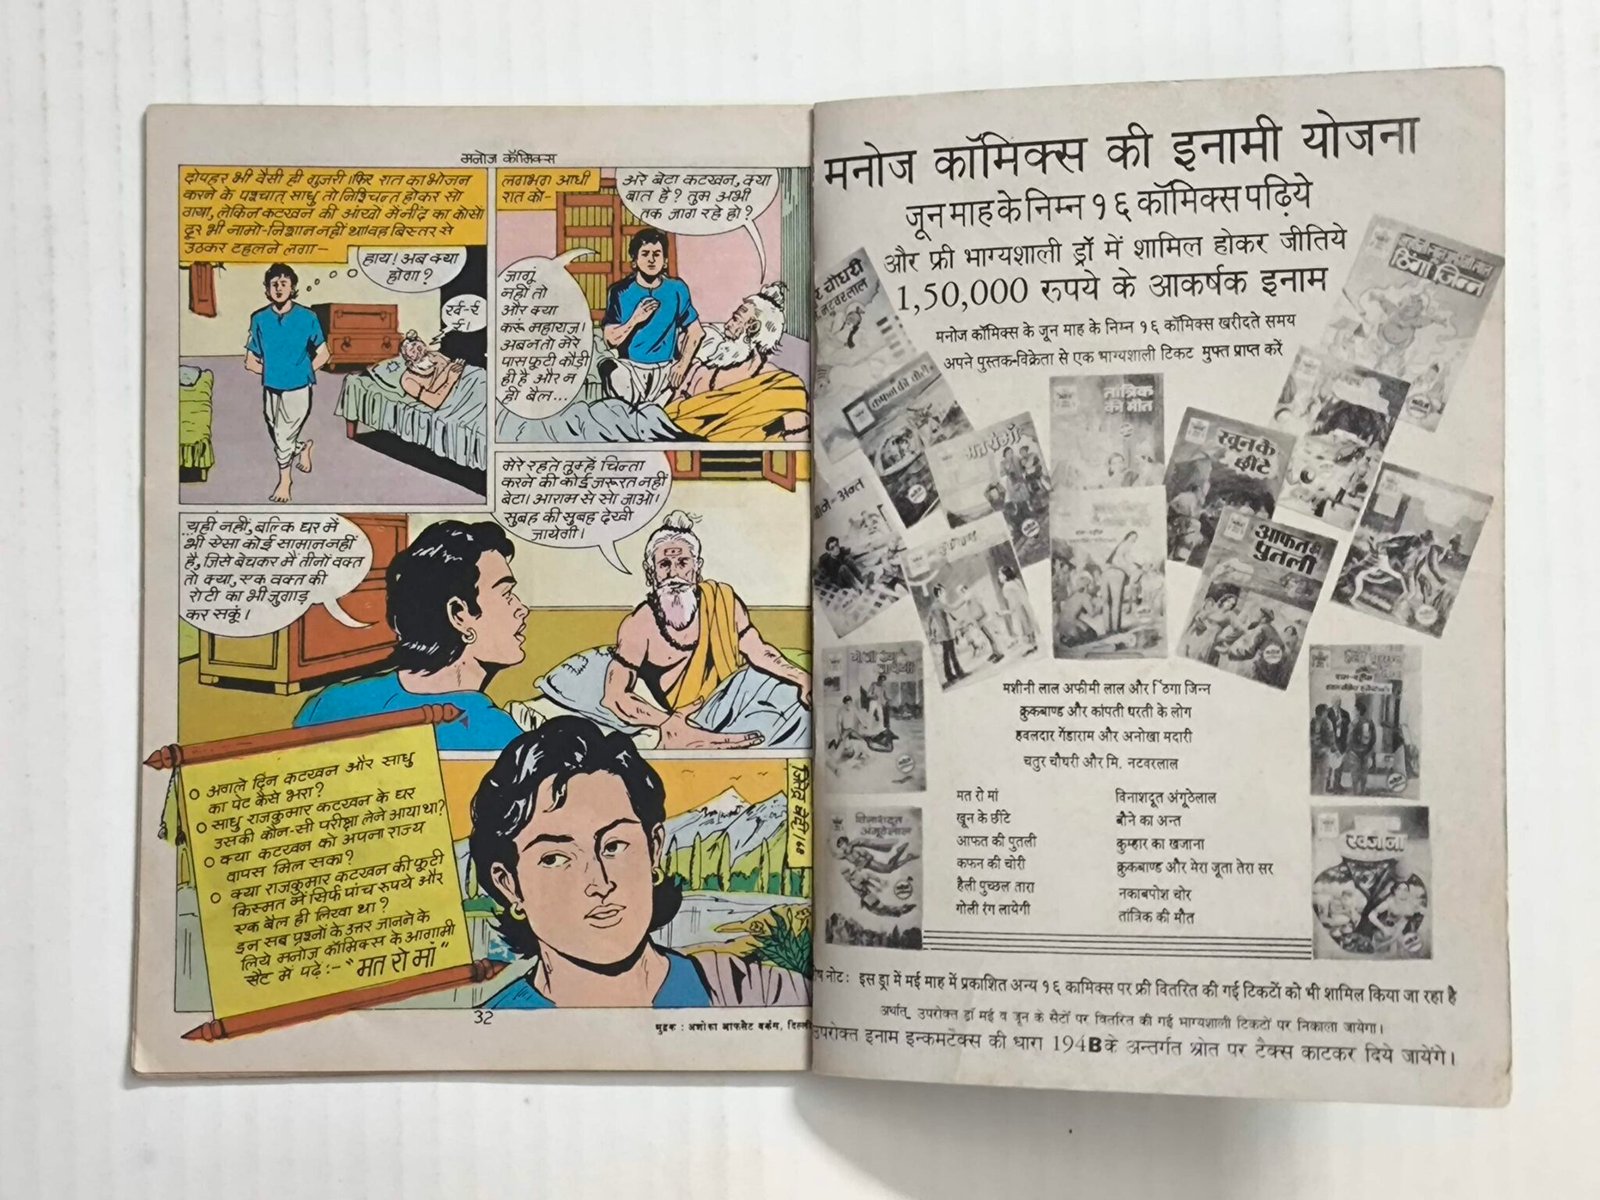 मनोज कॉमिक्स
दोपहर भी वैसी ही गुजरी। फिर रात का भोजन
करने के पश्चात् साधु तो निश्चिन्त होकर सो
गया, लेकिन कटखन की आंखों में नींद का कोसों
दूर भी नामो-निशान नहीं था। वह बिस्तर से
उठकर टहलने लगा-
हाय! अब क्या
होगा?
खर्र-र्र
र्र।
लगभग आधी
रात को-
अरे बेटा कटखन, क्या
बात है? तुम अभी
तक जाग रहे हो?
जागूं
नहीं तो
और क्या
करूं महाराज।
अब न तो मेरे
पास फूटी कौड़ी
ही है और न
ही बैल...
...यही नहीं, बल्कि घर में
भी ऐसा कोई सामान नहीं
है, जिसे बेचकर मैं तीनों वक्त
तो क्या, एक वक्त की
रोटी का भी जुगाड़
कर सकूं।
मेरे रहते तुम्हें चिन्ता
करने की कोई जरूरत नहीं
बेटा। आराम से सो जाओ।
सुबह की सुबह देखी
जायेगी।
० अगले दिन कटखन और साधु
का पेट कैसे भरा?
० साधु राजकुमार कटखन के घर
उसकी कौन-सी परीक्षा लेने आया था?
० क्या कटखन को अपना राज्य
वापस मिल सका?
० क्या राजकुमार कटखन की फूटी
किस्मत में सिर्फ पांच रुपये और
एक बैल ही लिखा था?
इन सब प्रश्नों के उत्तर जानने के
लिये मनोज कॉमिक्स के आगामी
सैट में पढ़ें:- "मत रो मां"
32
मुद्रक : अशोका आफसैट वर्कस, दिल्ली
मनोज कॉमिक्स की इनामी योजना
जून माह के निम्न १६ कॉमिक्स पढ़िये
और फ्री भाग्यशाली ड्रॉ में शामिल होकर जीतिये
1,50,000 रूपये के आकर्षक इनाम
मनोज कॉमिक्स के जून माह के निम्न १६ कॉमिक्स खरीदते समय
अपने पुस्तक-विक्रेता से एक भाग्यशाली टिकट मुफ्त प्राप्त करें
चौधरी
नटवरलाल
ठिगा जिन्न
कफन की चोरी
मत रो माँ
तांत्रिक
की मौत
खून के
छींटे
अन्त
आफत की
पुतली
विनाशदूत
अंगूठेलाल
खजाना
मशीनी लाल अफीमी लाल और ठिगा जिन्न
क्रुकबाण्ड और कांपती धरती के लोग
हवलदार गेंडाराम और अनोखा मदारी
चतुर चौधरी और मि. नटवरलाल
मत रो मां
खून के छींटे
आफत की पुतली
कफन की चोरी
हैली पुच्छल तारा
गोली रंग लायेगी
विनाशदूत अंगूठेलाल
बौने का अन्त
कुम्हार का खजाना
क्रुकबाण्ड और मेरा जूता तेरा सर
नकाबपोश चोर
तांत्रिक की मौत
नोट: इस ड्रा में मई माह में प्रकाशित अन्य १६ कामिक्स पर फ्री वितरित की गई टिकटों को भी शामिल किया जा रहा है
अर्थात् उपरोक्त ड्रॉ मई व जून के सैटों पर वितरित की गई भाग्यशाली टिकटों पर निकाला जायेगा।
उपरोक्त इनाम इन्कमटेक्स की धारा 194B के अन्तर्गत श्रोत पर टैक्स काटकर दिये जायेंगे।